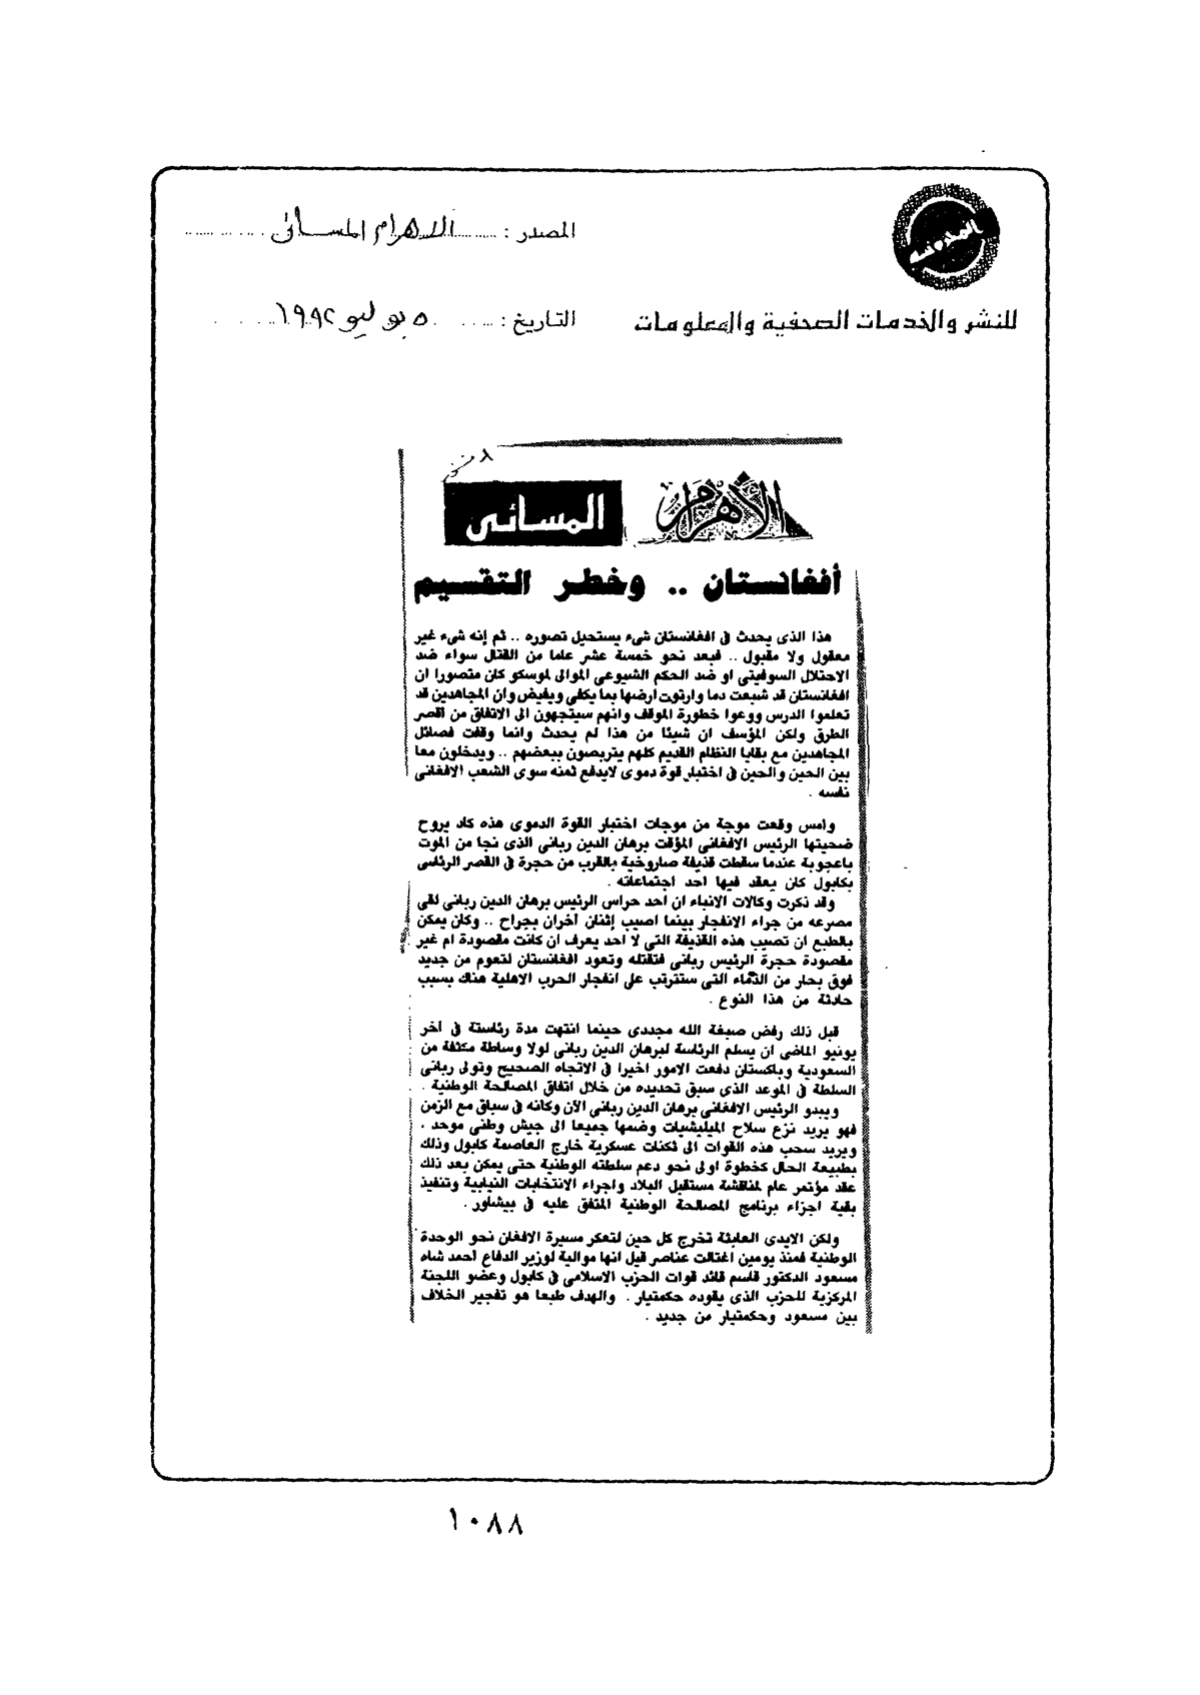 المصدر : الاهرام المسائى
للنشر والخدمات الصحفية والمعلومات
التاريخ : ٥ يوليو ١٩٩٢
الأهرام المسائى
أفغانستان .. وخطر التقسيم
هذا الذى يحدث فى افغانستان شىء يستحيل تصوره .. ثم إنه شىء غير
معقول ولا مقبول .. فبعد نحو خمسة عشر عاما من القتال سواء ضد
الاحتلال السوفيتى او ضد الحكم الشيوعى الموالى لموسكو كان متصورا ان
افغانستان قد شبعت دما وارتوت ارضها بما يكفى ويفيض وان المجاهدين قد
تعلموا الدرس ووعوا خطورة الموقف وانهم سيتجهون الى الاتفاق من اقصر
الطرق ولكن المؤسف ان شيئا من هذا لم يحدث وانما وقفت فصائل
المجاهدين مع بقايا النظام القديم كلهم يتربصون ببعضهم .. ويدخلون معا
بين الحين والحين فى اختبار قوة دموى لايدفع ثمنه سوى الشعب الافغانى
نفسه .
وامس وقعت موجة من موجات اختبار القوة الدموى هذه كاد يروح
ضحيتها الرئيس الافغانى المؤقت برهان الدين ربانى الذى نجا من الموت
باعجوبة عندما سقطت قذيفة صاروخية بالقرب من حجرة فى القصر الرئاسى
بكابول كان يعقد فيها احد اجتماعاته .
وقد ذكرت وكالات الانباء ان احد حراس الرئيس برهان الدين ربانى لقى
مصرعه من جراء الانفجار بينما اصيب إثنان آخران بجراح .. وكان يمكن
بالطبع ان تصيب هذه القذيفة التى لا احد يعرف ان كانت مقصودة ام غير
مقصودة حجرة الرئيس ربانى فتقتله وتعود افغانستان لتعوم من جديد
فوق بحار من الدماء التى ستترتب على انفجار الحرب الاهلية هناك بسبب
حادثة من هذا النوع .
قبل ذلك رفض صبغة الله مجددى حينما انتهت مدة رئاسته فى آخر
يونيو الماضى ان يسلم الرئاسة لبرهان الدين ربانى لولا وساطة مكثفة من
السعودية وباكستان دفعت الامور اخيرا فى الاتجاه الصحيح وتولى ربانى
السلطة فى الموعد الذى سبق تحديده من خلال اتفاق المصالحة الوطنية .
ويبدو الرئيس الافغانى برهان الدين ربانى الآن وكانه فى سباق مع الزمن
فهو يريد نزع سلاح الميليشيات وضمها جميعا الى جيش وطنى موحد .
ويريد سحب هذه القوات الى ثكنات عسكرية خارج العاصمة كابول وذلك
بطبيعة الحال كخطوة اولى نحو دعم سلطته الوطنية حتى يمكن بعد ذلك
عقد مؤتمر عام لمناقشة مستقبل البلاد واجراء الانتخابات النيابية وتنفيذ
بقية اجزاء برنامج المصالحة الوطنية المتفق عليه فى بيشاور .
ولكن الايدى العابثة تخرج كل حين لتعكر مسيرة الافغان نحو الوحدة
الوطنية فمنذ يومين اغتالت عناصر قيل انها موالية لوزير الدفاع احمد شاه
مسعود الدكتور قاسم قائد قوات الحزب الاسلامى فى كابول وعضو اللجنة
المركزية للحزب الذى يقوده حكمتيار . والهدف طبعا هو تفجير الخلاف
بين مسعود وحكمتيار من جديد .
١٠٨٨